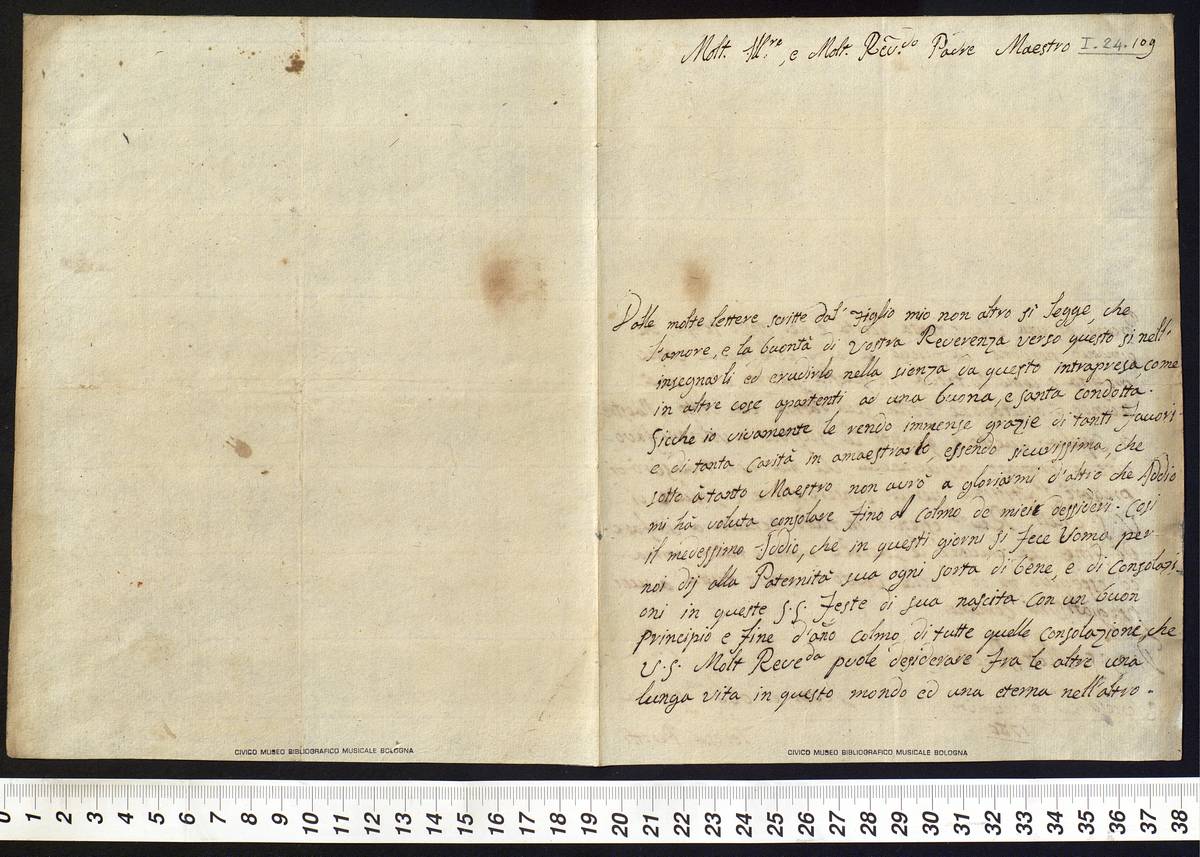 Molt. Ill.re, e Molt. Rev.do Padre Maestro I.24.109
Dalle molte lettere scritte dal' Figlio mio non altro si legge, che
l'amore, e la buontà di Vostra Reverenza verso questo si nell'
insegnarli ed erudirlo nella sienza da questo intrapresa, come
in altre cose apartenti ad una buona, e santa condotta.
Sicche io vivamente le rendo immense grazie di tanti Favori
e di tanta carità in amaestrarlo, essendo sicurissima, che
sotto à tanto Maestro non avrò a gloriarmi d'altro che Iddio
mi hà voluta consolare fino al Colmo de miei dessideri. Così
il medessimo Iddio, che in questi giorni si fece Uomo per
noi dij alla Paternità sua ogni sorta di bene, e di Consolazi-
oni in queste S.S. Feste di sua nascita con un buon
principio e fine d'año colmo di tutte quelle Consolazioni, che
V.S. Molt Reve.da puole desiderare fra le altre una
lunga vita in questo mondo ed una eterna nell'altro.
CIVICO MUSEO BIBLIOGRAFICO MUSICALE BOLOGNA
CIVICO MUSEO BIBLIOGRAFICO MUSICALE BOLOGNA
0 1 2 3 4 5 6 7 8 9 10 11 12 13 14 15 16 17 18 19 20 21 22 23 24 25 26 27 28 29 30 31 32 33 34 35 36 37 38